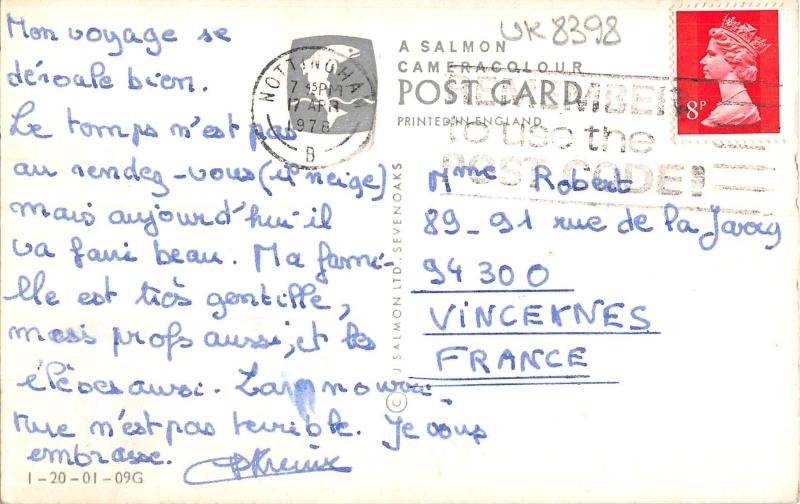 Mon voyage se
déroule bien.
Le temps n'est pas
au rendez-vous (il neige)
mais aujourd'hui il
va faire beau. Ma fami-
lle est très gentille,
mes profs aussi, et les
élèves aussi. La nourri-
ture n'est pas terrible. Je vous
embrasse.
1-20-01-09G
UK 8398
A SALMON
CAMERACOLOUR
POST CARD
PRINTED IN ENGLAND
NOTTINGHA
7 45PM
17 APR
1978
B
REMEMBER
to use the
POST CODE!
8P
© J SALMON LTD., SEVENOAKS
Mme Robert
89-91 rue de la
94300
VINCENNES
FRANCE